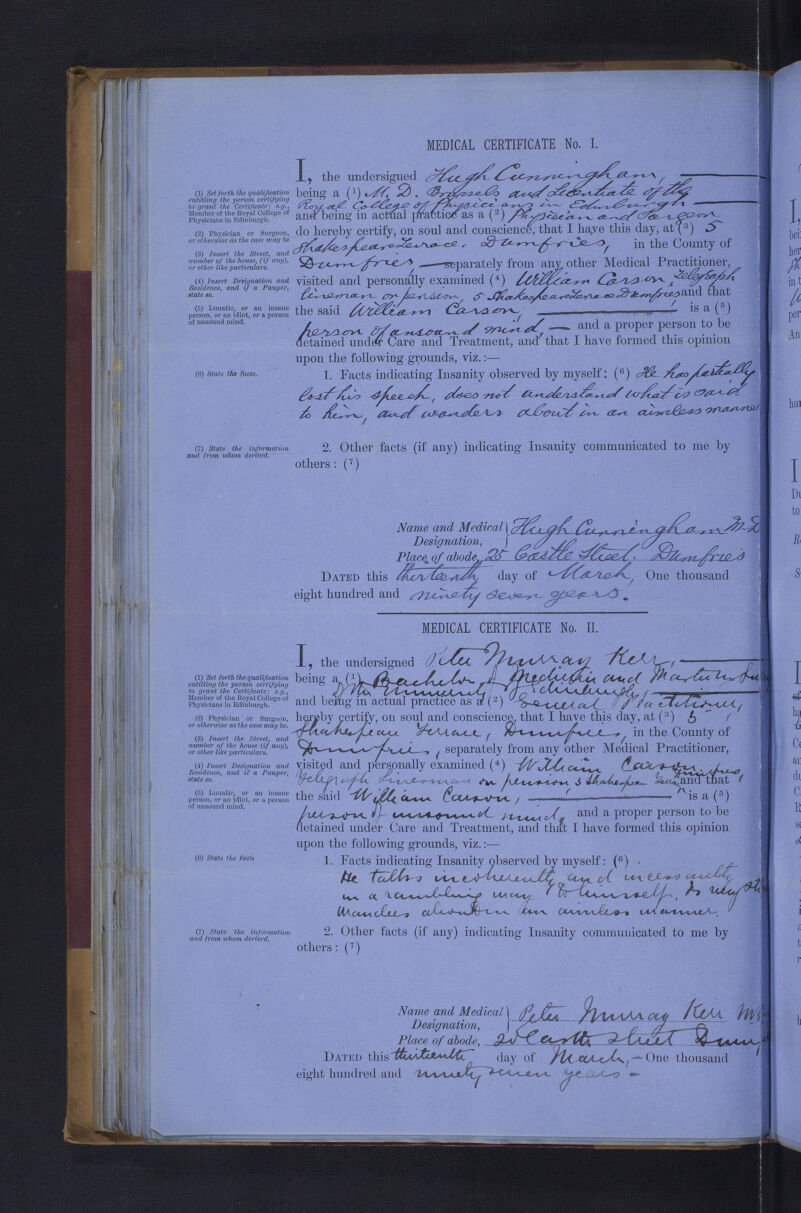 MEDICAL CERTIFICATE No. I.
I, the undersigned Hugh Cunningham,
(1) Set forth the qualification entitling the person certifying to grant the Certificate: e.g., Member of the Royal College of Physicians in Edinburgh.
being a (1) M. D. Brussels and Licentiate of the
Royal College of Physicians in Edinburgh
and being in actual practice as a (2) Physician and Surgeon
(2) Physician or Surgeon, or otherwise as the case may be
do hereby certify, on soul and conscience, that I have this day, at (3) 5
Shakespeare Terrace, Dumfries, in the County of
(3) Insert the Street, and number of the house, (if any), or other like particulars.
Dumfries, separately from any other Medical Practitioner,
(4) Insert Designation and Residence, and if a Pauper, state so.
visited and personally examined (4) William Carson, Telegraph
lineman on pension, 5 Shakespeare Terrace Dumfries and that
(5) Lunatic, or an insane person, or an idiot, or a person of unsound mind.
the said William Carson, is a (5)
person of unsound mind, and a proper person to be
detained under Care and Treatment, and that I have formed this opinion
upon the following grounds, viz.:—
(6) State the facts.
1. Facts indicating Insanity observed by myself: (6) He has partially
lost his speech, does not understand what is said
to him, and wanders about in an aimless manner
(7) State the information and from whom derived.
2. Other facts (if any) indicating Insanity communicated to me by
others: (7)
Name and Medical Designation, Hugh Cunningham M.D
Place of abode, 25 Castle Street, Dumfries
DATED this thirteenth day of March, One thousand
eight hundred and ninety seven years.
MEDICAL CERTIFICATE No. II.
I, the undersigned Peter Murray Kerr,
(1) Set forth the qualification entitling the person certifying to grant the Certificate: e.g., Member of the Royal College of Physicians in Edinburgh.
being a (1) Bachelor of Medicine and Master in
of the University of Edinburgh,
and being in actual practice as a (2) General Practitioner,
(2) Physician or Surgeon, or otherwise as the case may be.
hereby certify, on soul and conscience, that I have this day, at (3) 5
Shakespeare Terrace, Dumfries, in the County of
(3) Insert the Street, and number of the house (if any), or other like particulars.
Dumfries, separately from any other Medical Practitioner,
(4) Insert Designation and Residence, and if a Pauper, state so.
visited and personally examined (4) William Carson,
Telegraph Linesman on pension 5 Shakespeare Terr, Dumfries and that
(5) Lunatic, or an insane person, or an idiot, or a person of unsound mind.
the said William Carson, is a (5)
person of unsound mind, and a proper person to be
detained under Care and Treatment, and that I have formed this opinion
upon the following grounds, viz.:—
(6) State the facts
1. Facts indicating Insanity observed by myself: (6)
He talks incoherently and incessantly
in a rambling way to himself,
wanders about in an aimless manner.
(7) State the information and from whom derived.
2. Other facts (if any) indicating Insanity communicated to me by
others: (7)
Name and Medical Designation, Peter Murray Kerr
Place of abode, Castle Street
DATED this thirteenth day of March, One thousand
eight hundred and ninety seven years